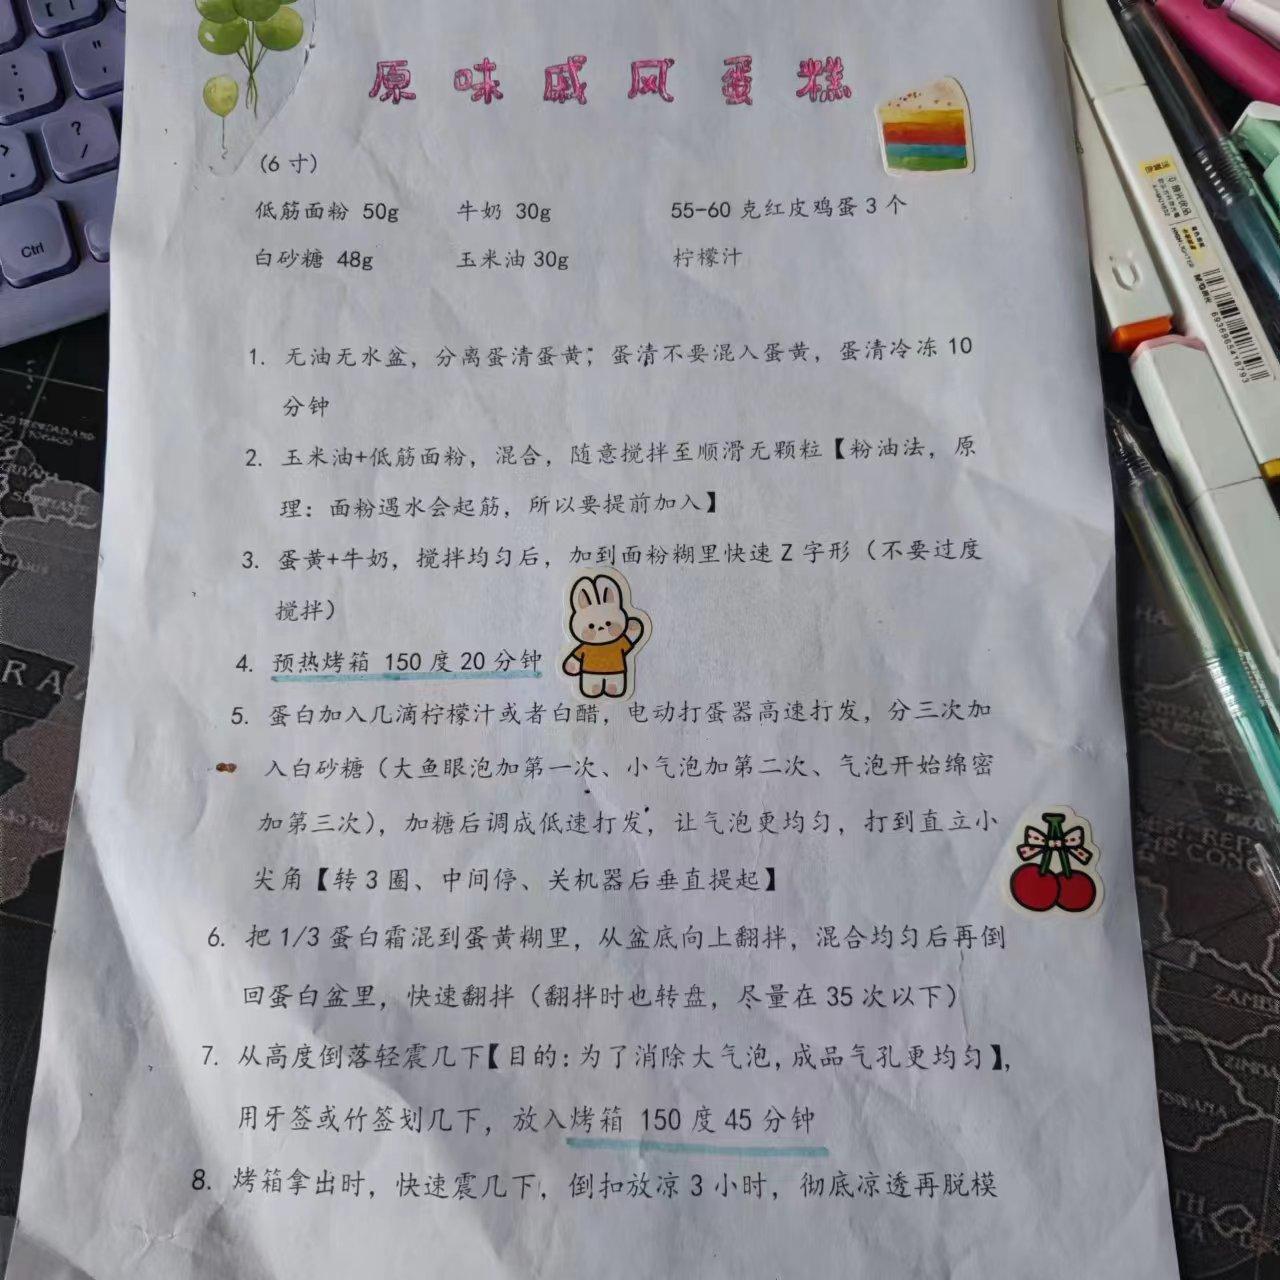 原味戚风蛋糕
(6寸)
低筋面粉 50g 牛奶 30g 55-60克红皮鸡蛋3个
白砂糖 48g 玉米油30g 柠檬汁
1. 无油无水盆，分离蛋清蛋黄；蛋清不要混入蛋黄，蛋清冷冻10
分钟
2. 玉米油+低筋面粉，混合，随意搅拌至顺滑无颗粒【粉油法，原
理：面粉遇水会起筋，所以要提前加入】
3. 蛋黄+牛奶，搅拌均匀后，加到面粉糊里快速Z字形（不要过度
搅拌）
4. 预热烤箱 150度20分钟
5. 蛋白加入几滴柠檬汁或者白醋，电动打蛋器高速打发，分三次加
入白砂糖（大鱼眼泡加第一次、小气泡加第二次、气泡开始绵密
加第三次），加糖后调成低速打发，让气泡更均匀，打到直立小
尖角【转3圈、中间停、关机器后垂直提起】
6. 把1/3蛋白霜混到蛋黄糊里，从盆底向上翻拌，混合均匀后再倒
回蛋白盆里，快速翻拌（翻拌时也转盘，尽量在35次以下）
7. 从高度倒落轻震几下【目的：为了消除大气泡，成品气孔更均匀】，
用牙签或竹签划几下，放入烤箱 150度45分钟
8. 烤箱拿出时，快速震几下，倒扣放凉3小时，彻底凉透再脱模
Ctrl
6936965418793